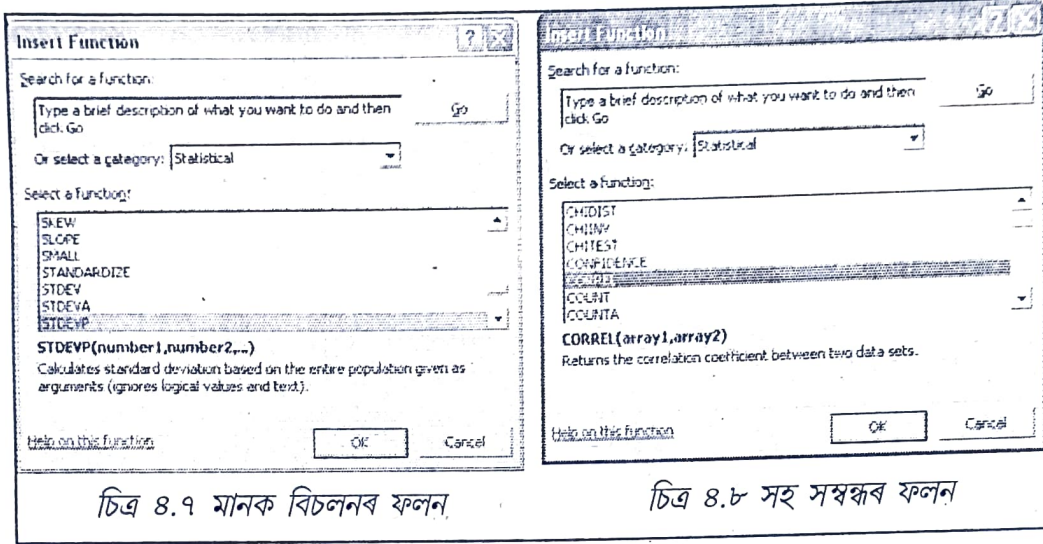 Insert Function
Search for a function:
Type a brief description of what you want to do and then
click Go
Go
Or select a category: Statistical
Select a function:
SKEW
SLOPE
SMALL
STANDARDIZE
STDEV
STDEVA
STDEVP
STDEVP(number1,number2,...)
Calculates standard deviation based on the entire population given as
arguments (ignores logical values and text).
Help on this function
OK
Cancel
চিত্ৰ ৪.৭ মানক বিচলনৰ ফলন
Insert Function
Search for a function:
Type a brief description of what you want to do and then
click Go
Go
Or select a category: Statistical
Select a function:
CHIDIST
CHIINV
CHITEST
CONFIDENCE
CORREL
COUNT
COUNTA
CORREL(array1,array2)
Returns the correlation coefficient between two data sets.
Help on this function
OK
Cancel
চিত্ৰ ৪.৮ সহ সম্বন্ধৰ ফলন